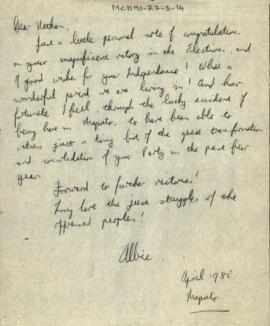 MCH91-22-5-14
Dear Nathan,
Just a little personal note of congratulations
on your magnificent victory in the Elections, and
of good wishes for your Independence! What a
wonderful period we are living in! And how
fortunate I feel, through the lucky accident of
being here in Maputo, to have been able to
witness just a tiny bit of the great transformation
and consolidation of your Party in the past few
years.
Forward to further victories!
Long live the just struggles of the
oppressed peoples!
Albie
April 1980
Maputo